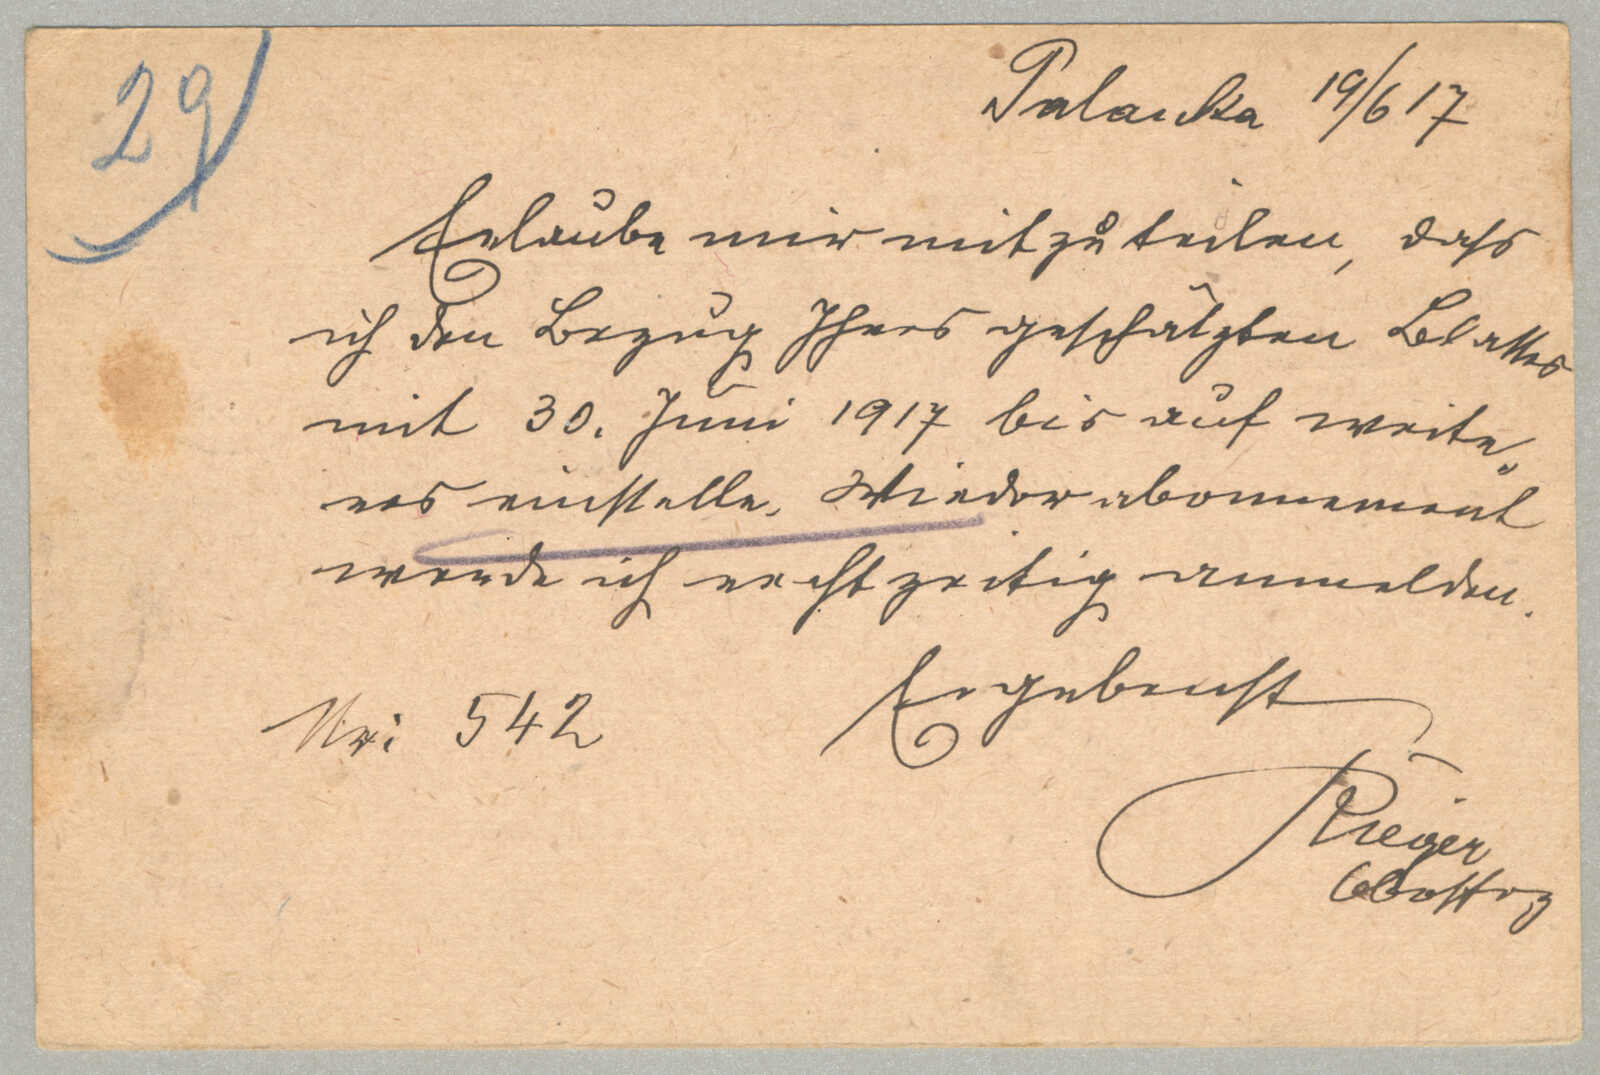 29
Palanka 19/6 17
Erlaube mir mitzuteilen, dass
ich den Bezug Ihres geschätzten Blattes
mit 30. Juni 1917 bis auf weite„
res einstelle. Wiederabonnement
werde ich rechtzeitig anmelden.
Ergebenst
Nr: 542
Rieger